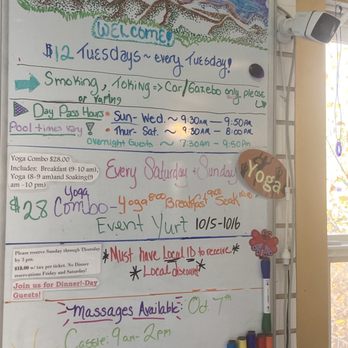 WELCOME!
$12 TUESDAYS ~ every Tuesday!
Smoking, Toking => Car/Gazebo only, please
or Vaping
Day Pass Hours * Sun-Wed. ~ 9:30AM - 9:50PM
Pool times vary! * Thur-Sat. ~ 9:30AM - 8:00PM
Overnight Guests ~ 7:30AM - 9:50PM
Yoga Combo $28.00
Includes: Breakfast (9-10 am),
Yoga (8-9 am) and Soaking (9 am
- 10 pm)
Every Saturday + Sunday
Yoga
$28 Yoga Combo - Yoga 8:00 Breakfast 9:00 Soak
Event Yurt 10/5-10/6
Please reserve Sunday through Thursday
by 3 pm.
$18.00 w/ tax per ticket. No Dinner
reservations Friday and Saturday!
Join us for Dinner!-Day
Guests!
*Must have Local ID to receive
*Local discount*
Massages Available: Oct 7th
Cassie: 9am-2pm